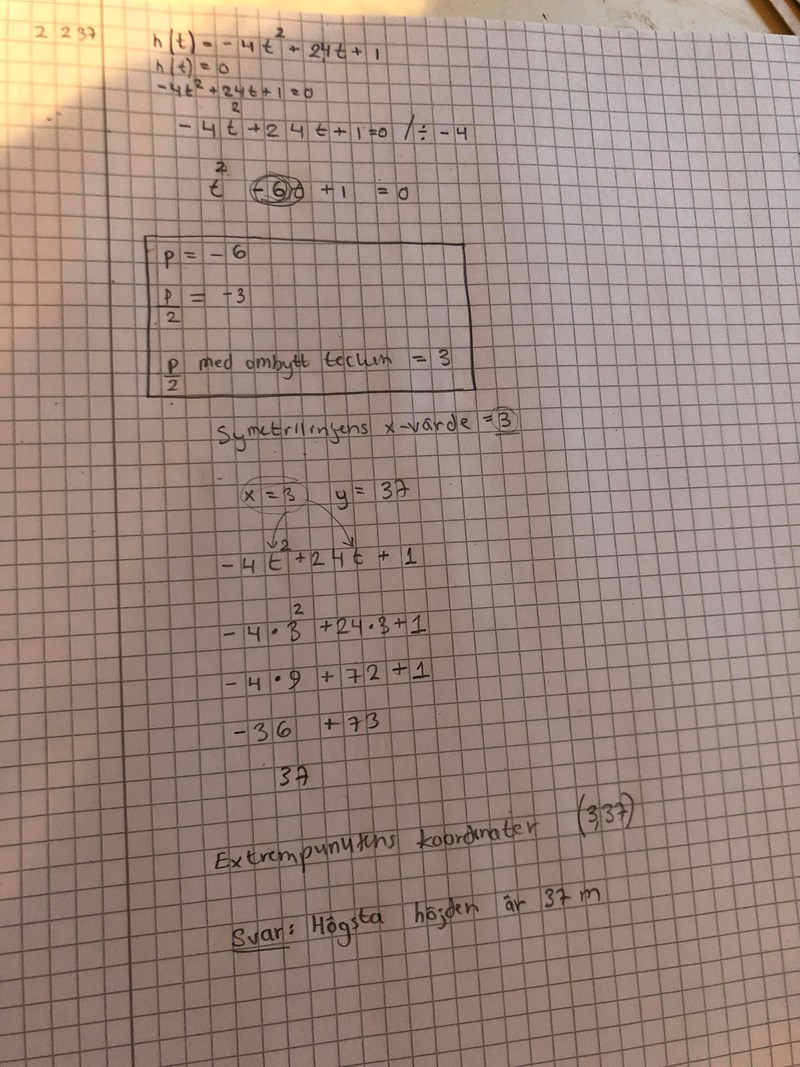 2 237
h(t) = -4t² + 24t + 1
h(t) = 0
-4t² + 24t + 1 = 0
-4t² + 24t + 1 = 0 / ÷ -4
t² - 6t + 1 = 0
p = -6
p/2 = -3
p/2 med ombytt tecken = 3
Symetrilinjens x-värde = 3
x = 3 y = 37
-4t² + 24t + 1
-4 · 3² + 24 · 3 + 1
-4 · 9 + 72 + 1
-36 + 73
37
Extrempunktens koordinater (3,37)
Svar: Högsta höjden är 37 m